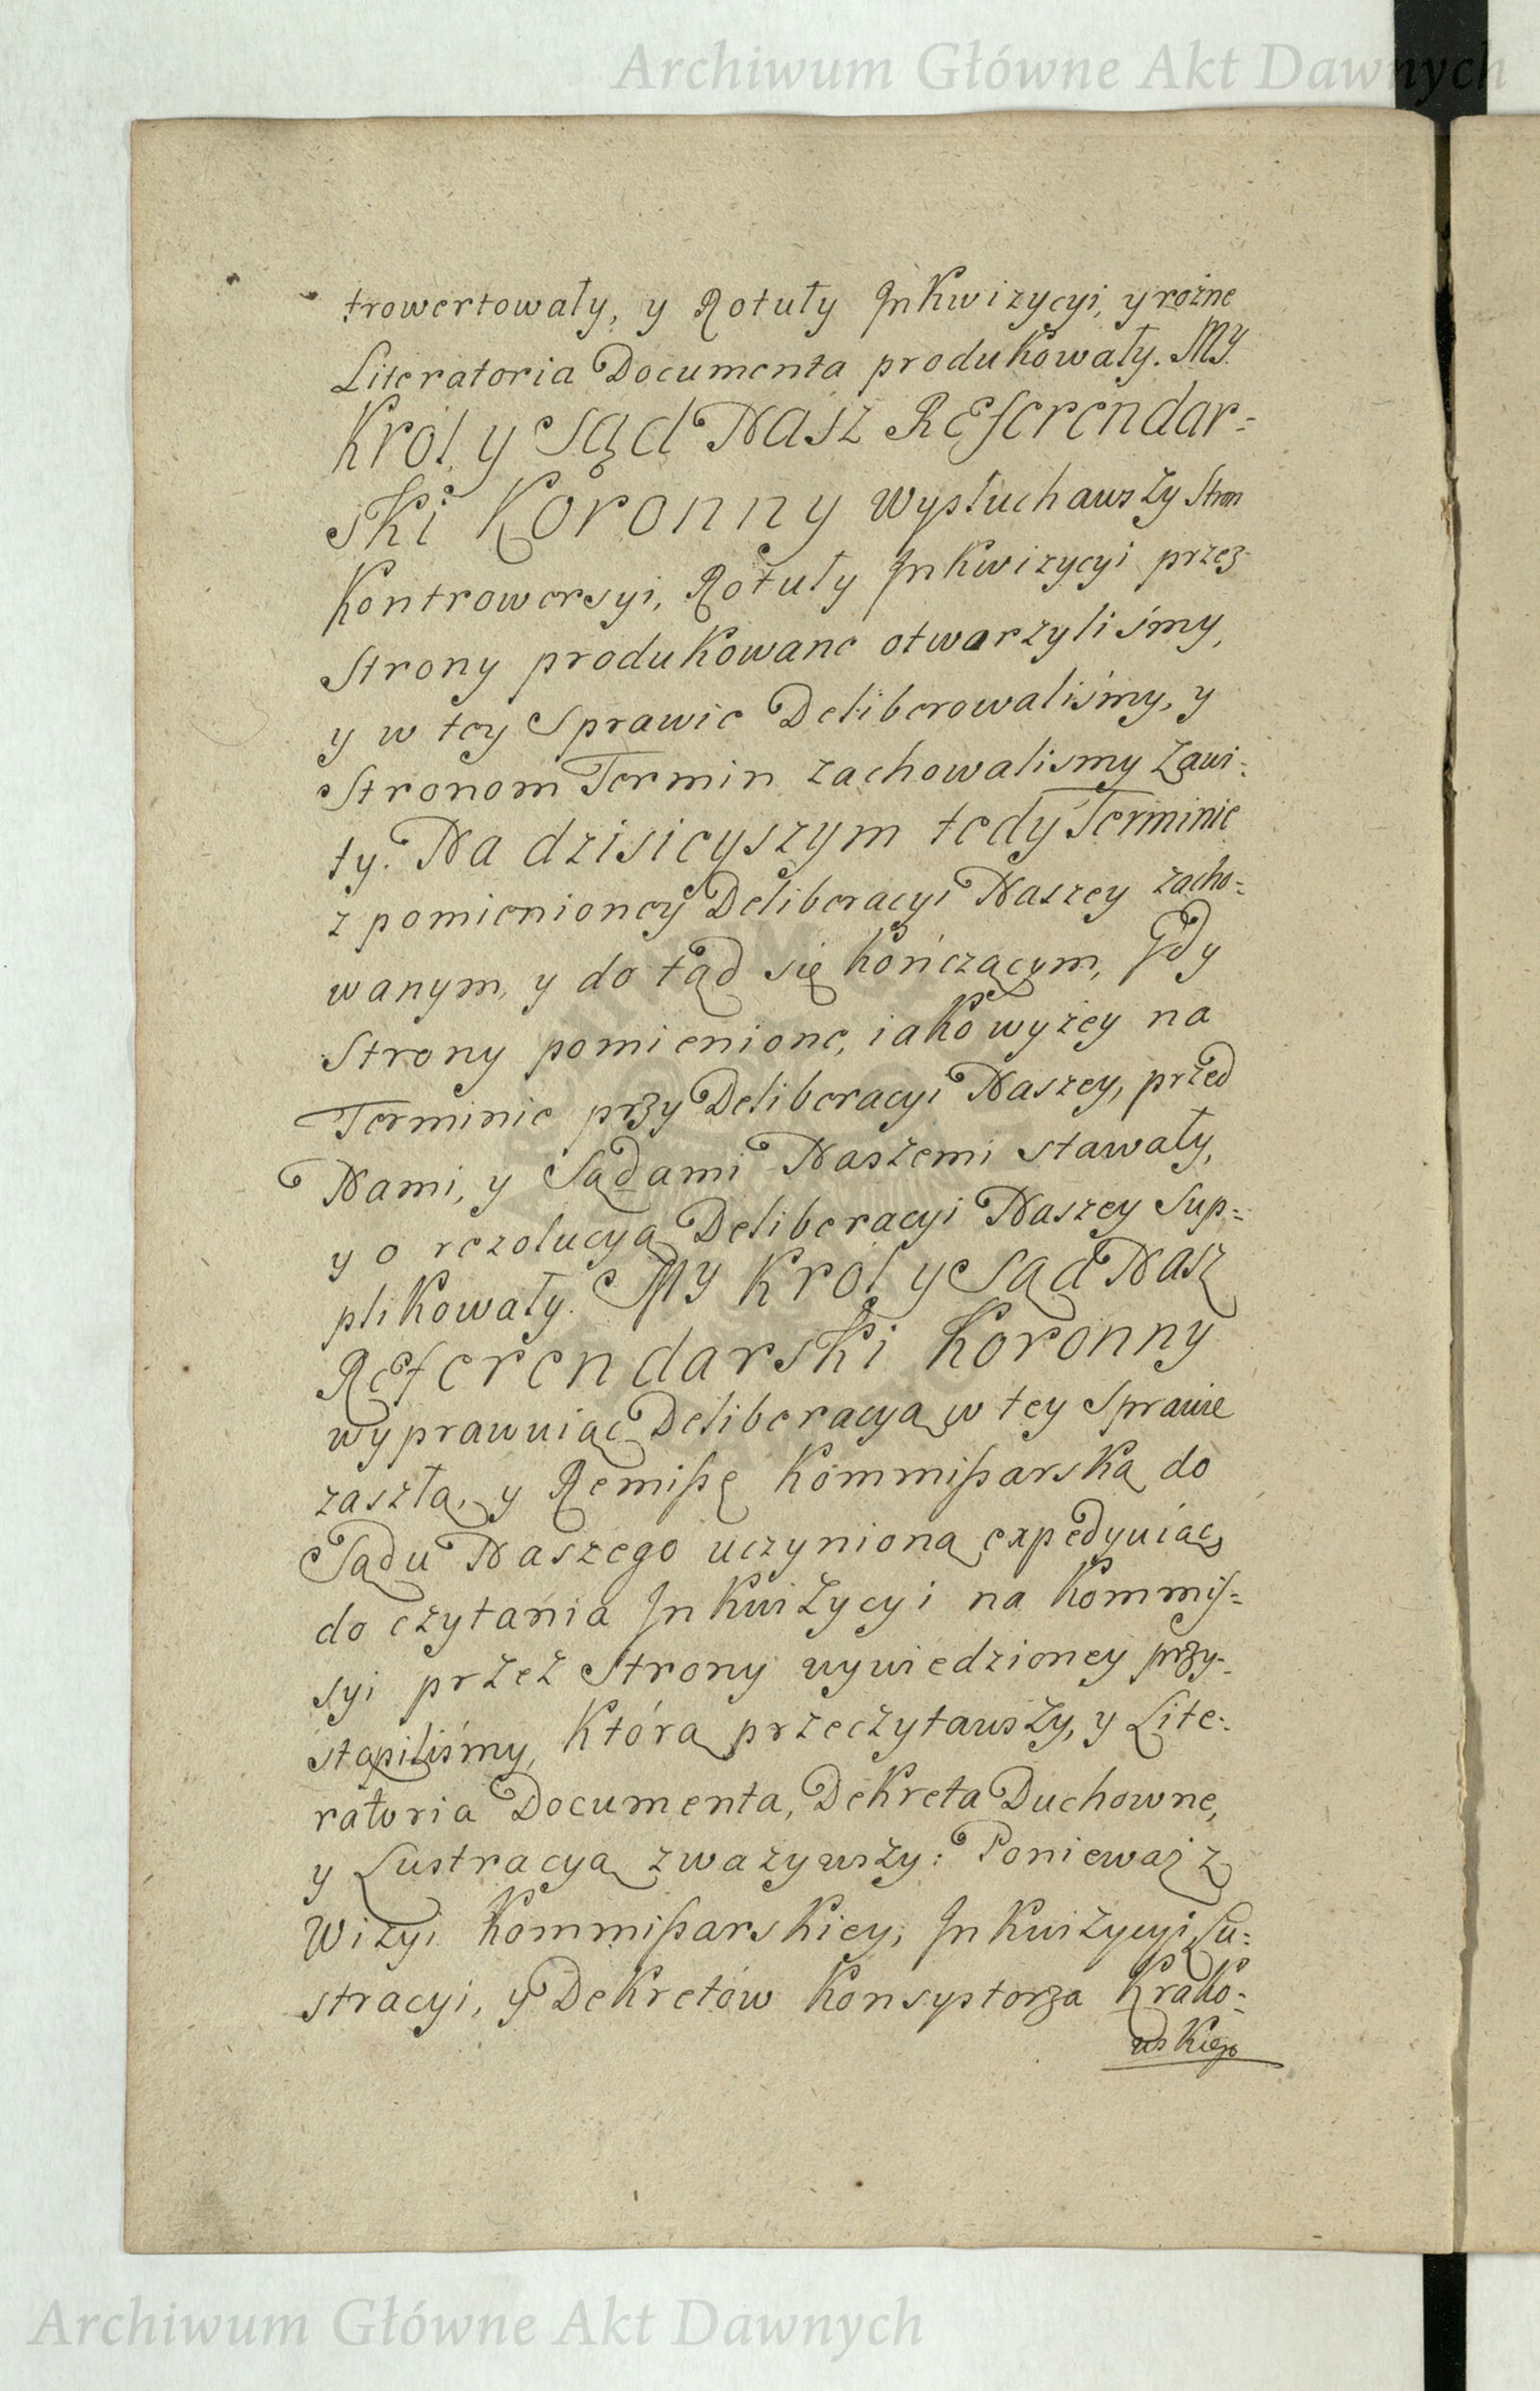 Archiwum Główne Akt Dawnych
trowertowały, y Rotuły Inkwizycyi, y rożne
Literatoria Documenta produkowały. MY
Krol y Sąd Nasz Referendar=
ski Koronny wysłuchawszy Stron
Kontrowersyi, Rotuły Inkwizycyi przez
Strony produkowane otworzyliśmy,
y w tey Sprawie Deliberowaliśmy, y
Stronom Termin zachowalismy Zawi=
ty. Na dzisieyszym tedy Terminie
z pomienioney Deliberacyi Naszey zacho=
wanym, y do tąd się kończącym, Gdy
Strony pomienione, iako wyżey na
Terminie przy Deliberacyi Naszey, przed
Nami, y Sądami Naszemi stawały,
y o rezolucyą Deliberacyi Naszey Sup=
plikowały. My Krol y Sąd Nasz
Referendarski Koronny
wyprawuiąc Deliberacyą w tey Sprawie
zaszłą, y Remissę Kommissarską do
Sądu Naszego uczynioną expedyuiąc,
do czytania Inkwizycyi na Kommis=
syi przez Strony wywiedzioney przy=
stąpiliśmy, Którą przeczytawszy, y Lite=
ratoria Documenta, Dekreta Duchowne,
y Lustracyą zważywszy: Ponieważ z
Wizyi Kommissarskiey, Inkwizycyi, Lu=
stracyi, y Dekretów Konsystorza Krako=
wskiego
Archiwum Główne Akt Dawnych